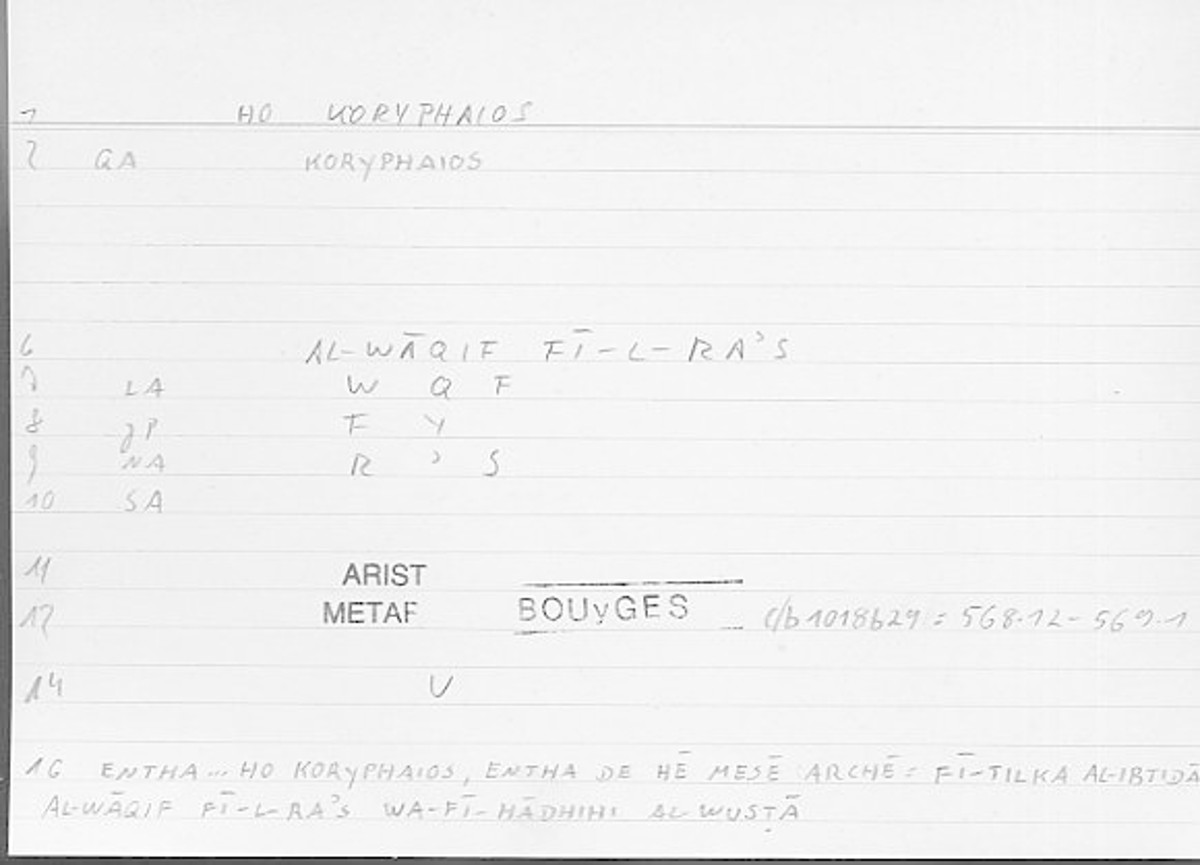 1 HO KORYPHAIOS
2 GA KORYPHAIOS
6 AL-WĀQIF FĪ-L-RA'S
7 LA W Q F
8 gP F Y
9 NA R ' S
10 SA
11 ARIST
12 METAF BOUyGES c/b 1018b29 = 568.12-569.1
14 V
16 ENTHA... HO KORYPHAIOS, ENTHA DE HĒ MESĒ ARCHĒ = FĪ-TILKA AL-IBTIDĀ
AL-WĀQIF FĪ-L-RA'S WA-FĪ-HĀDHIHI AL-WUSṬĀ